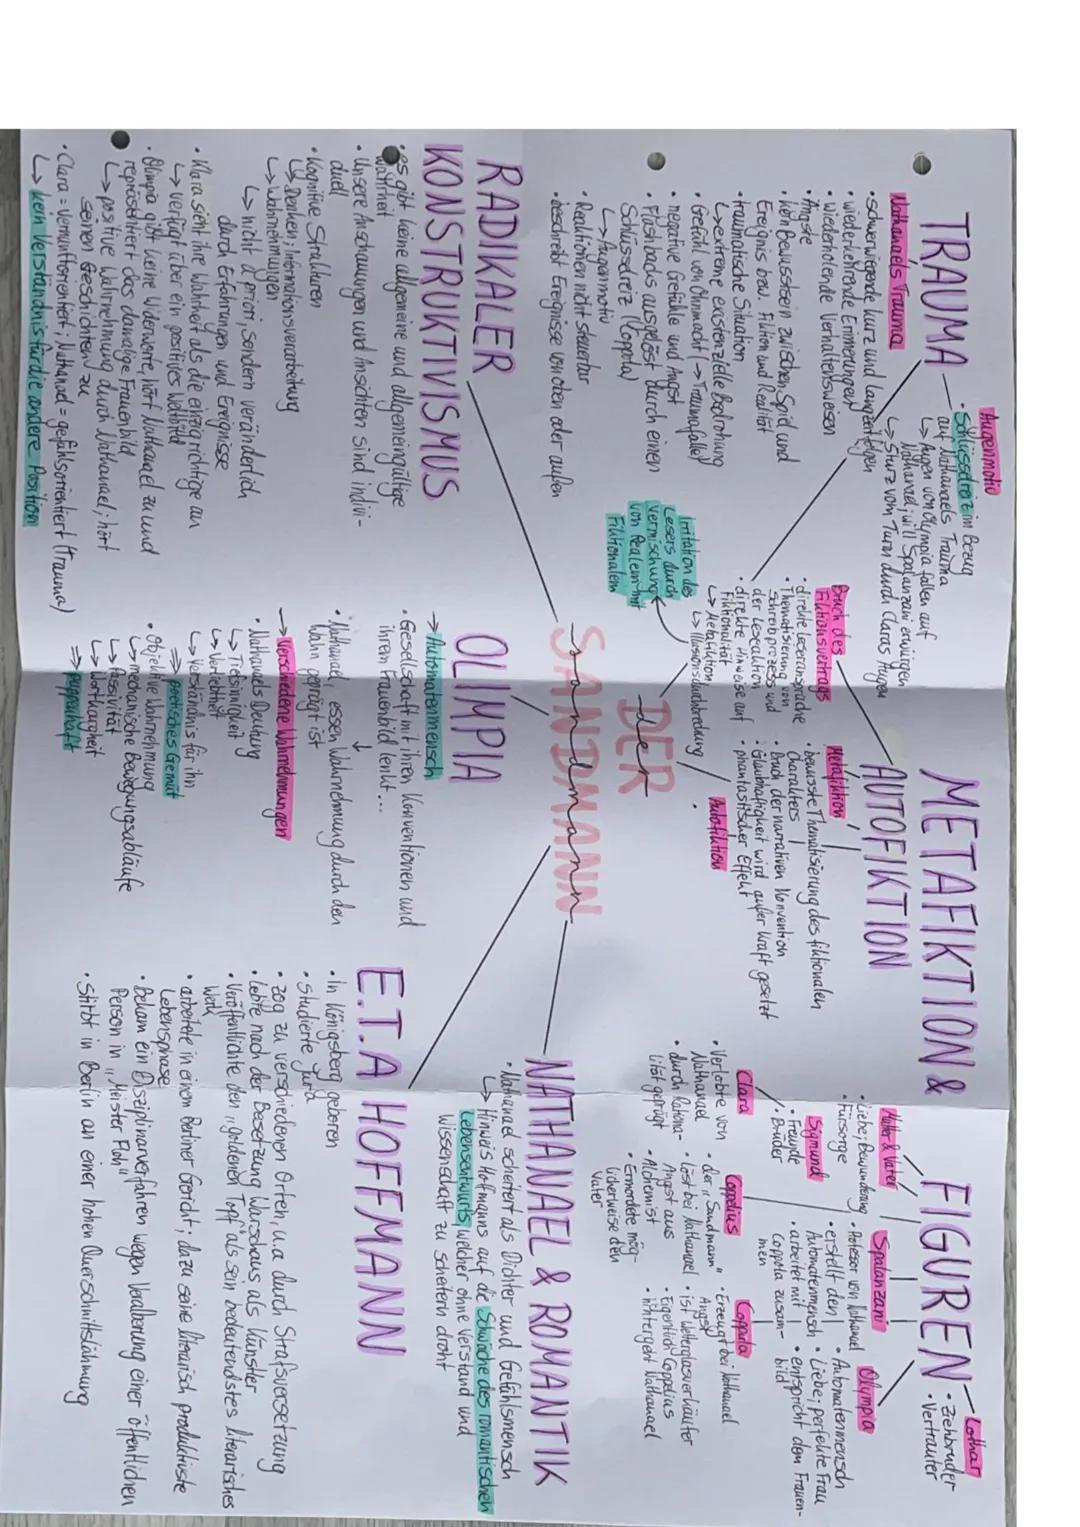 TRAUMA
Augenmotiv
• Schlüsselreiz im Bezug
auf Nathanaels Trauma
↳ Augen von Olympia fallen auf
Nathanael; will Spalanzani erwürgen
↳ Sturz vom Turm durch Claras Augen
Nathanaels Trauma
• schwerwiegende kurz und langzeitfolgen
• wiederkehrende Erinnerungen
• wiederholende Verhaltensweisen
• Ängste
• kein Bewusstsein zwischen Spiel und
Ereignis bzw. Fiktion und Realität
traumatische Situation
↳ extreme existenzielle Bedrohung
• Gefühl von Ohnmacht (→ Traumafalle)
• negative Gefühle und Angst
• Flashbacks ausgelöst durch einen
Schlüsselreiz (Coppola)
↳ Augenmotiv
• Reaktionen nicht steuerbar
• beschreibt Ereignisse von oben oder außen
METAFIKTION &
AUTOFIKTION
Bruch des
Fiktionsvertrags
• direkte Leseransprache
• Thematisierung von
Schreibprozess und
der Lesesituation
• direkte Hinweise auf
Fiktionalität
↳ Metafiktion
↳ Illusionsdurchbrechung
Irritation des
Lesers durch
Vermischung
von Realem mit
Fiktionalem
Metafiktion
• bewusste Thematisierung des fiktionalen
Charakters
• Bruch der narrativen Konvention
• Glaubhaftigkeit wird außer Kraft gesetzt
• phantastischer Effekt
Autofiktion
FIGUREN
Lothar
• Ziehbruder
• Vertrauter
Mutter & Vater
• Liebe; Bewunderung
• Fürsorge
Sigmund
• Freunde
• Brüder
Spalanzani
• Professor von Nathanael
• erstellt den
Automatenmensch
• arbeitet mit
Coppola zusam-
men
Olympia
• Automatenmensch
• Liebe; perfekte Frau
• entspricht dem Frauen-
bild
Clara
• Verlobte von
Nathanael
• durch Rationa-
lität geprägt
Coppelius
• der "Sandmann"
• löst bei Nathanael
Angst aus
• Alchemist
• Ermordete mög-
licherweise den
Vater
Coppola
• Erzeugt bei Nathanael
Angst
• ist Wetterglasverkäufer
• Eigentlich Coppelius
• hintergeht Nathanael
DER
der
SANDMANN
sandmann
RADIKALER
KONSTRUKTIVISMUS
• es gibt keine allgemeine und allgemeingültige
Wahrheit
• Unsere Anschauungen und Ansichten sind indivi-
duell
• Kognitive Strukturen
↳ Denken; Informationsverarbeitung
↳ Wahrnehmungen
↳ nicht a priori, sondern veränderlich
durch Erfahrungen und Ereignisse
• Klara sieht ihre Wahrheit als die einzig richtige an
↳ verfügt über ein positives Weltbild
• Olimpia gibt keine Widerworte, hört Nathanael zu und
repräsentiert das damalige Frauenbild
↳ positive Wahrnehmung durch Nathanael; hört
seinen Geschichten zu
• Clara = Vernunftorientiert; Nathanael = gefühlsorientiert (Trauma)
↳ kein Verständnis für die andere Position
OLIMPIA
→ Automatenmensch
• Gesellschaft mit ihren Konventionen und
ihrem Frauenbild lenkt...
↓
• Nathanael, essen Wahrnehmung durch den
Wahn geprägt ist
→ Verschiedene Wahrnehmungen
• Nathanaels Deutung
↳ Tiefsinnigkeit
↳ Verliebtheit
↳ Verständnis für ihn
⇒ poetisches Gemüt
• Objektive Wahrnehmung
↳ mechanische Bewegungsabläufe
↳ Passivität
↳ Wortkargheit
⇒ puppenhaft
NATHANAEL & ROMANTIK
• Nathanael scheitert als Dichter und Gefühlsmensch
↳ Hinweis Hoffmanns auf die Schwäche des romantischen
Lebensentwurfs, welcher ohne Verstand und
Wissenschaft zu scheitern droht
E.T.A HOFFMANN
• In Königsberg geboren
• Studierte Jura
• zog zu verschiedenen Orten, u.a durch Strafversetzung
• lebte nach der Besetzung Warschaus, als Künstler
• Veröffentlichte den "goldenen Topf" als sein bedeutendstes literarisches
Werk
• arbeitete in einem Berliner Gericht; dazu seine literarisch produktivste
Lebensphase
• Bekam ein Disziplinarverfahren wegen Veralberung einer öffentlichen
Person in "Meister Floh"
• Stirbt in Berlin an einer hohen Querschnittslähmung